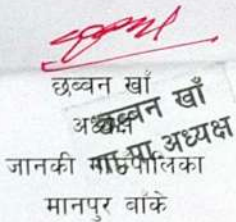 छब्वन खाँ
अध्यक्ष
जानकी गाउँपालिका
मानपुर बाँके
छब्वन खाँ
गा.पा. अध्यक्ष